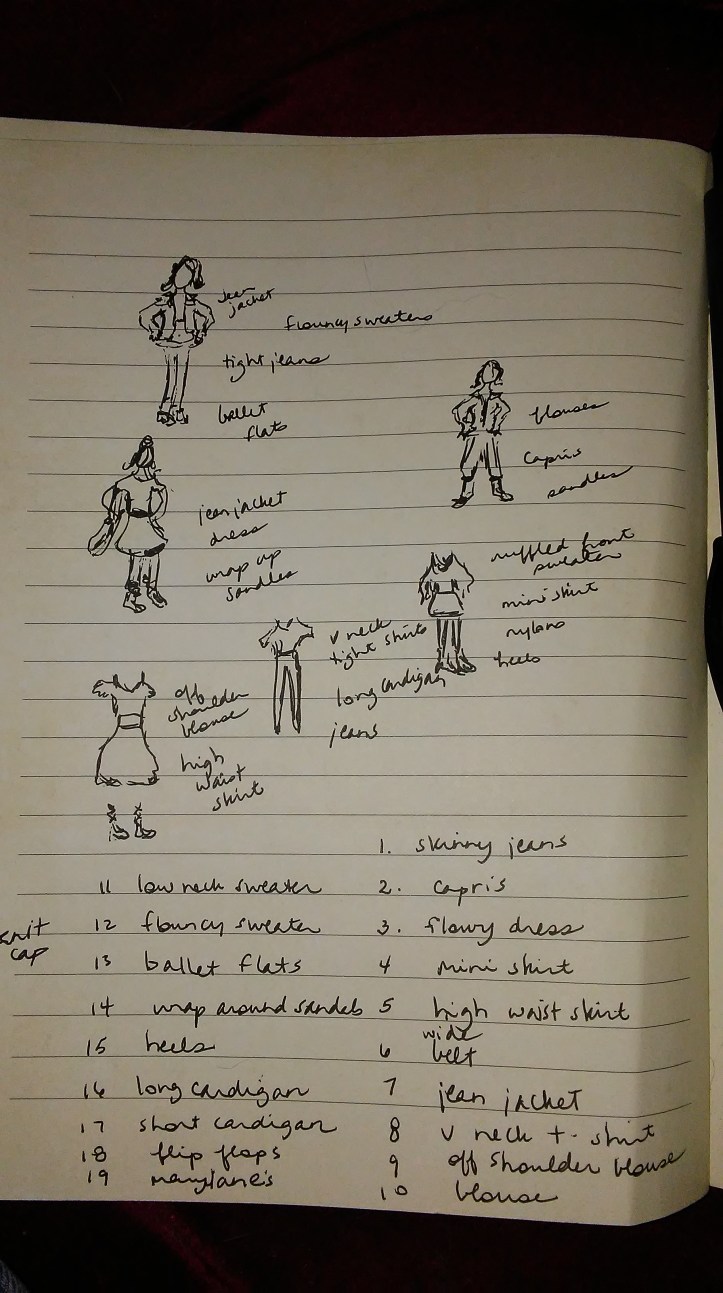 jean
jacket
flouncy sweaters
tight jeans
ballet
flats
blouses
capris
sandles
jean jacket
dress
wrap up
sandles
ruffled front
sweater
mini skirt
nylons
heels
v neck
tight shirts
long cardigan
jeans
off
shoulder
blouse
high
waist
skirt
1. skinny jeans
2. capris
3. flowy dress
4 mini skirt
5 high waist skirt
wide
6 belt
7 jean jacket
8 v neck t-shirt
9 off shoulder blouse
10 blouse
11 low neck sweater
knit
cap
12 flouncy sweater
13 ballet flats
14 wrap around sandels
15 heels
16 long cardigan
17 short cardigan
18 flip flops
19 maryjane's